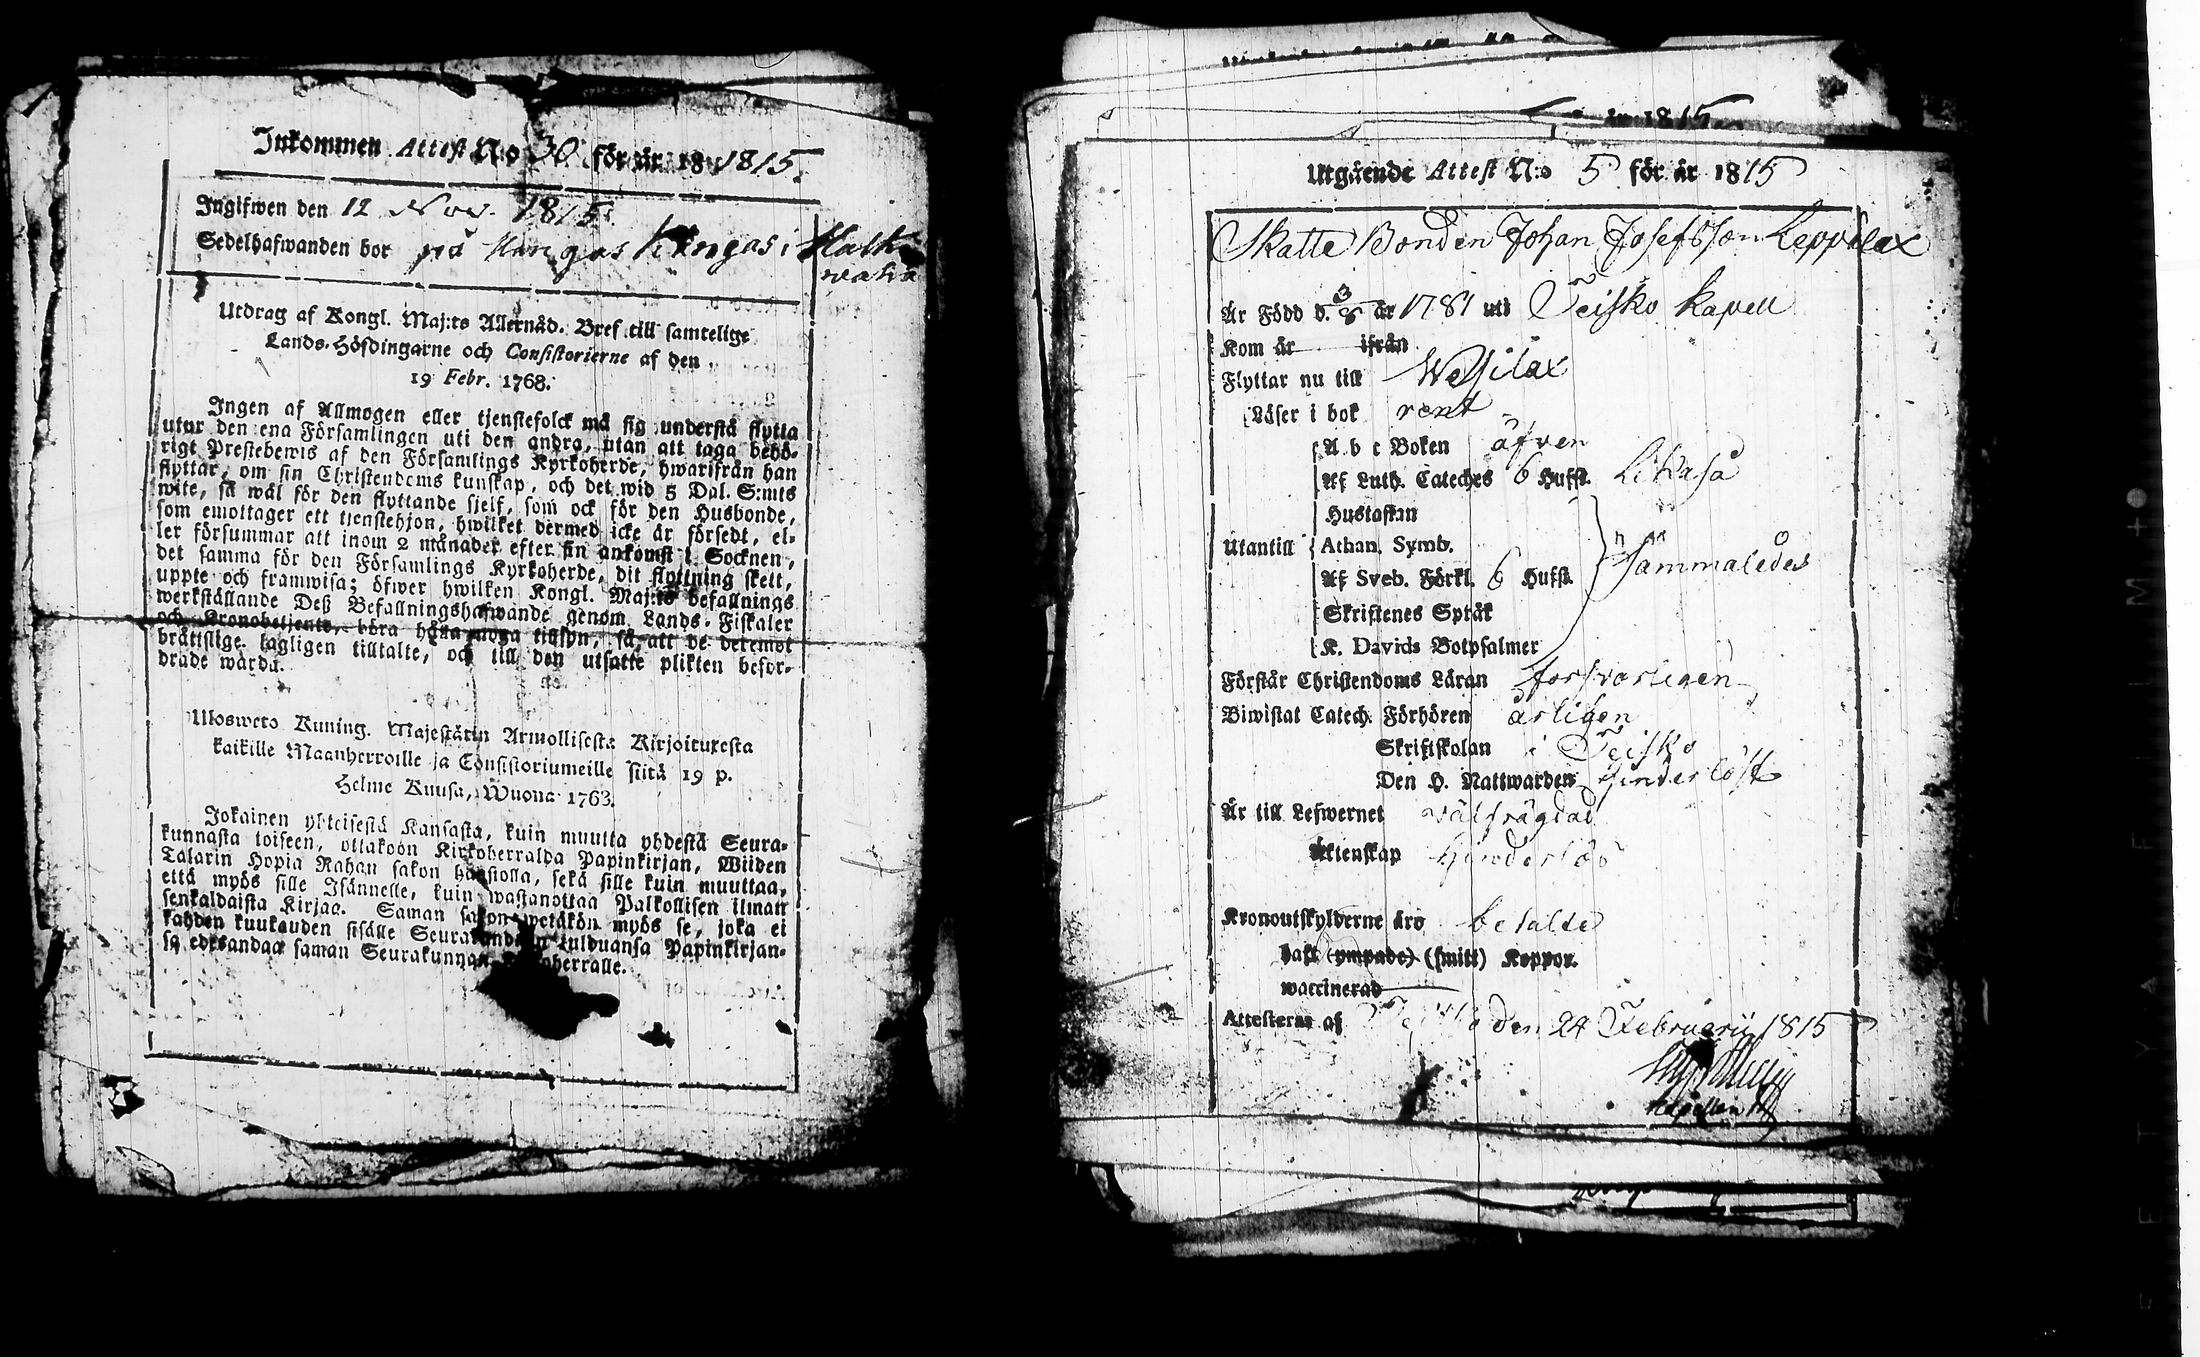 Inkommen Attest N:o 30 för år 18 1815.
Ingifwen den 12 Nov. 1815.
Sedelhafwanden bor på Kangas i
Utdrag af Kongl. Maj:ts Allernåd. Bref till samtelige
Lands-Höfdingarne och Consistorierne af den
19 Febr. 1768.
Ingen af Allmogen eller tjenstefolck må sig understå flytta
utur den ena Församlingen uti den andra, utan att taga behö-
rigt Prestebewis af den Församlings Kyrkoherde, hwarifrån han
flyttar, om sin Christendoms kunskap, och det wid 5 Dal. S:mts
wite, så wäl för den flyttande sjelf, som ock för den Husbonde,
som emottager ett tjenstehjon, hwilket dermed icke är försedt, el-
ler försummar att inom 2 månader efter sin ankomst i Socknen,
det samma för den Församlings Kyrkoherde, dit flyttning skett,
uppte och framwisa; öfwer hwilken Kongl. Maj:ts befallnings
werkställande Deß Befallningshafwande genom Lands-Fiskaler
och Kronobetjente, böra hålla noga tillsyn, så att de deremot
bråttslige lagligen tilltalte, och till den utsatte plikten befor-
drade warda.
Ulosweto Kuning. Majestätin Armollisesta Kirjoituxesta
kaikille Maanherroille ja Consistoriumeille siitä 19 p.
Helme Kuusa, Wuona 1763.
Jokainen yhteisestä Kansasta, kuin muutta yhdestä Seura-
kunnasta toiseen, ottakoon Kirkoherralda Papinkirjan, Wiiden
Talarin Hopia Rahan sakon haastolla, sekä sille kuin muuttaa,
että myös sille Isännelle, kuin wastanottaa Palkollisen ilman
senkaldaista Kirjaa. Saman sakon wetäkön myös se, joka ei
kahden kuukauden sisälle Seurakundaan tulduansa Papinkirjan-
sa edesandaa saman Seurakunnan Kirkoherralle.
än 1815
Utgående Attest N:o 5 för år 1815
Skatte Bonden Johan Josefsson Leppälax
Är Född d. 3/8 år 1781 uti Teisko kapell
Kom år ifrån
Flyttar nu till Wesilax
Läser i bok rent
A b c Boken äfven
Af Luth. Cateches 6 Hufst. Likaså
Hustaflan
Utantill Athan. Symb. Sammaledes
Af Sveb. Förkl. 6 Hufst.
Skriftenes Språk
K. Davids Botpsalmer
Förstår Christendoms Läran försvarligen
Biwistat Catech. Förhören årligen
Skriftskolan i Teisko
Den H. Nattwarden hinderlöst
Är till Lefwernet välfrägdad
Äktenskap hinderlös
Kronoutskylderne äro betalte
haft (ympade) (smitt) Koppor.
waccinerad
Attesteras af Teisko den 24 Februarii 1815
Kapellan